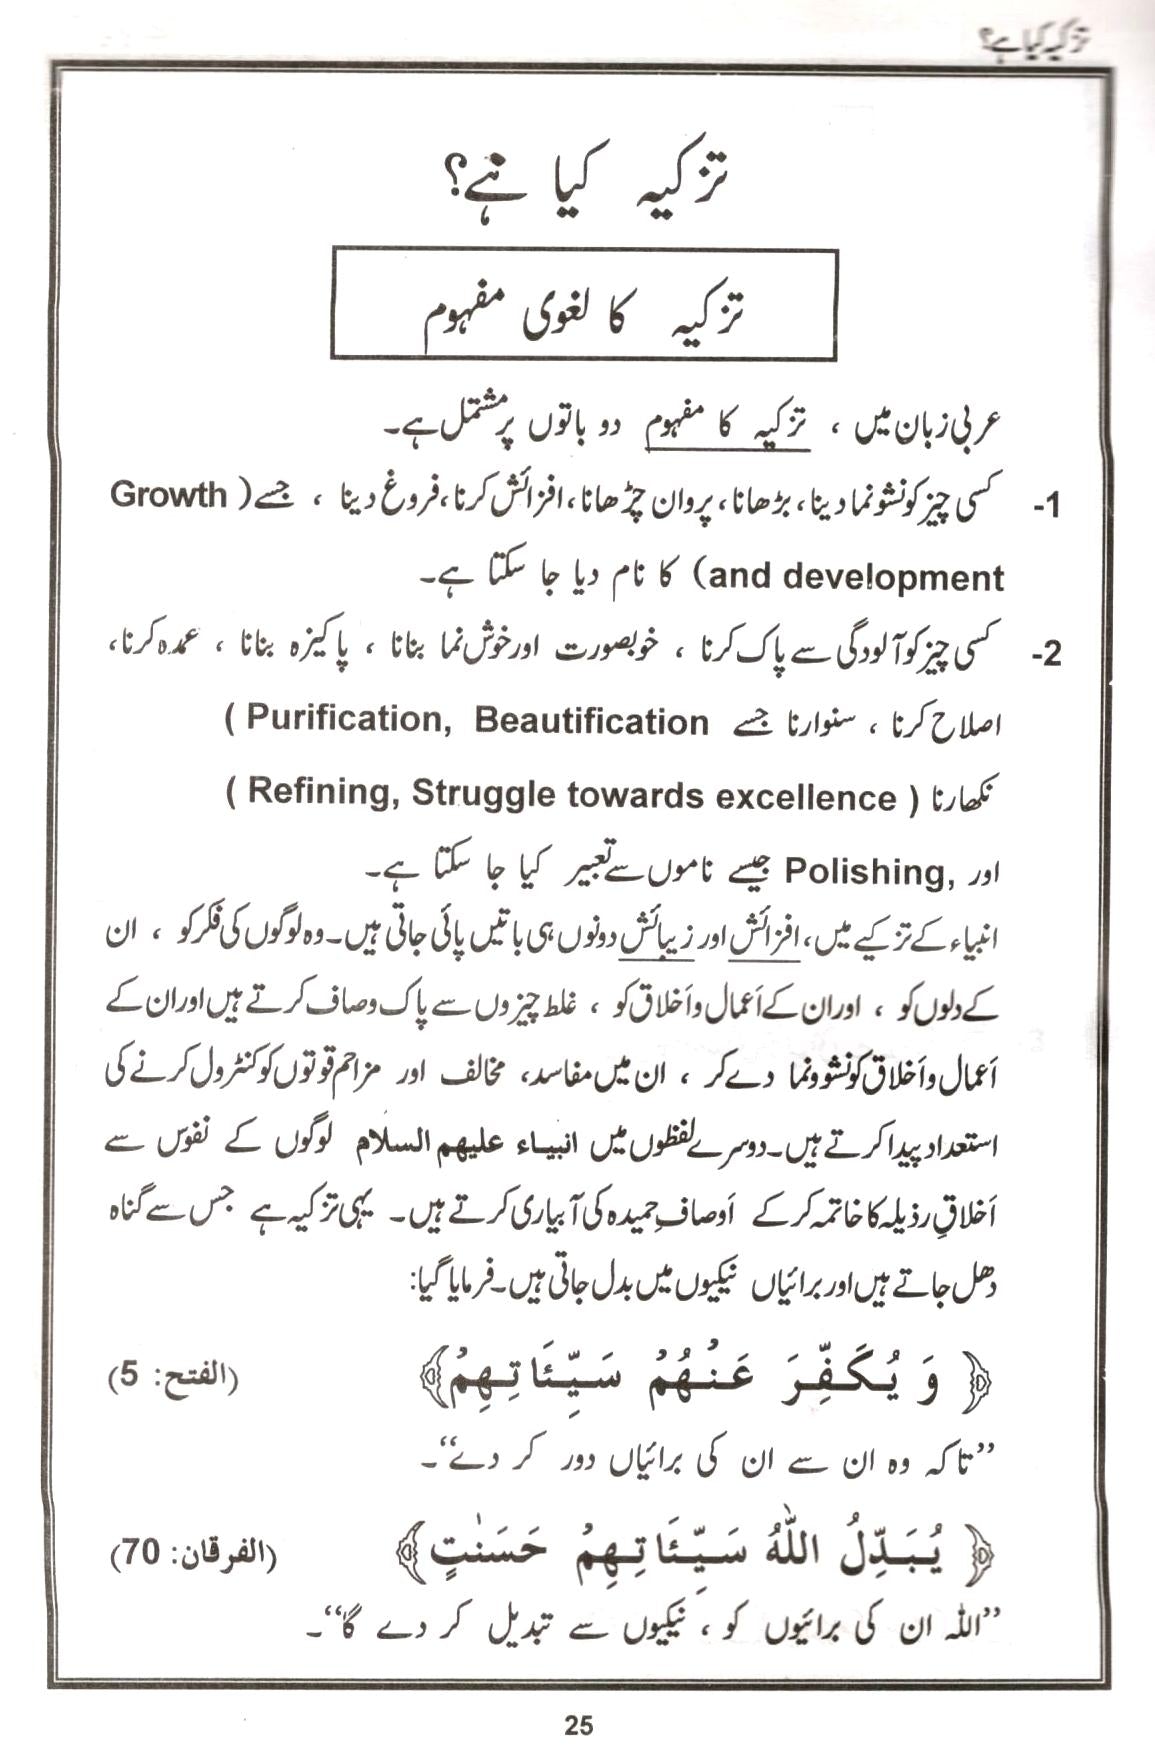 تزکیہ کیا ہے؟
تزکیہ کیا ہے؟
تزکیہ کا لغوی مفہوم
عربی زبان میں ، تزکیہ کا مفہوم دو باتوں پر مشتمل ہے۔
1- کسی چیز کو نشو نما دینا، بڑھانا، پروان چڑھانا، افزائش کرنا، فروغ دینا ، جسے ( Growth
and development) کا نام دیا جا سکتا ہے۔
2- کسی چیز کو آلودگی سے پاک کرنا ، خوبصورت اور خوش نما بنانا ، پاکیزہ بنانا ، عمدہ کرنا،
اصلاح کرنا ، سنوارنا جسے Purification, Beautification )
نکھارنا ( Refining, Struggle towards excellence )
اور Polishing, جیسے ناموں سے تعبیر کیا جا سکتا ہے۔
انبیاء کے تزکیے میں، افزائش اور زیبائش دونوں ہی باتیں پائی جاتی ہیں۔ وہ لوگوں کی فکر کو ، ان
کے دلوں کو ، اور ان کے اَعمال و اَخلاق کو ، غلط چیزوں سے پاک و صاف کرتے ہیں اور ان کے
اَعمال و اَخلاق کو نشو و نما دے کر ، ان میں مفاسد، مخالف اور مزاحم قوتوں کو کنٹرول کرنے کی
استعداد پیدا کرتے ہیں۔ دوسرے لفظوں میں انبیاء علیہم السلام لوگوں کے نفوس سے
اَخلاقِ رذیلہ کا خاتمہ کر کے اَوصافِ حمیدہ کی آبیاری کرتے ہیں۔ یہی تزکیہ ہے جس سے گناہ
دھل جاتے ہیں اور برائیاں نیکیوں میں بدل جاتی ہیں۔ فرمایا گیا:
﴿ وَ يُكَفِّرَ عَنْهُمْ سَيِّئَاتِهِمْ﴾ (الفتح: 5)
’’تاکہ وہ ان سے ان کی برائیاں دور کر دے‘‘۔
﴿ يُبَدِّلُ اللّٰهُ سَيِّئَاتِهِمْ حَسَنٰتٍ﴾ (الفرقان: 70)
’’اللہ ان کی برائیوں کو ، نیکیوں سے تبدیل کر دے گا‘‘۔
25